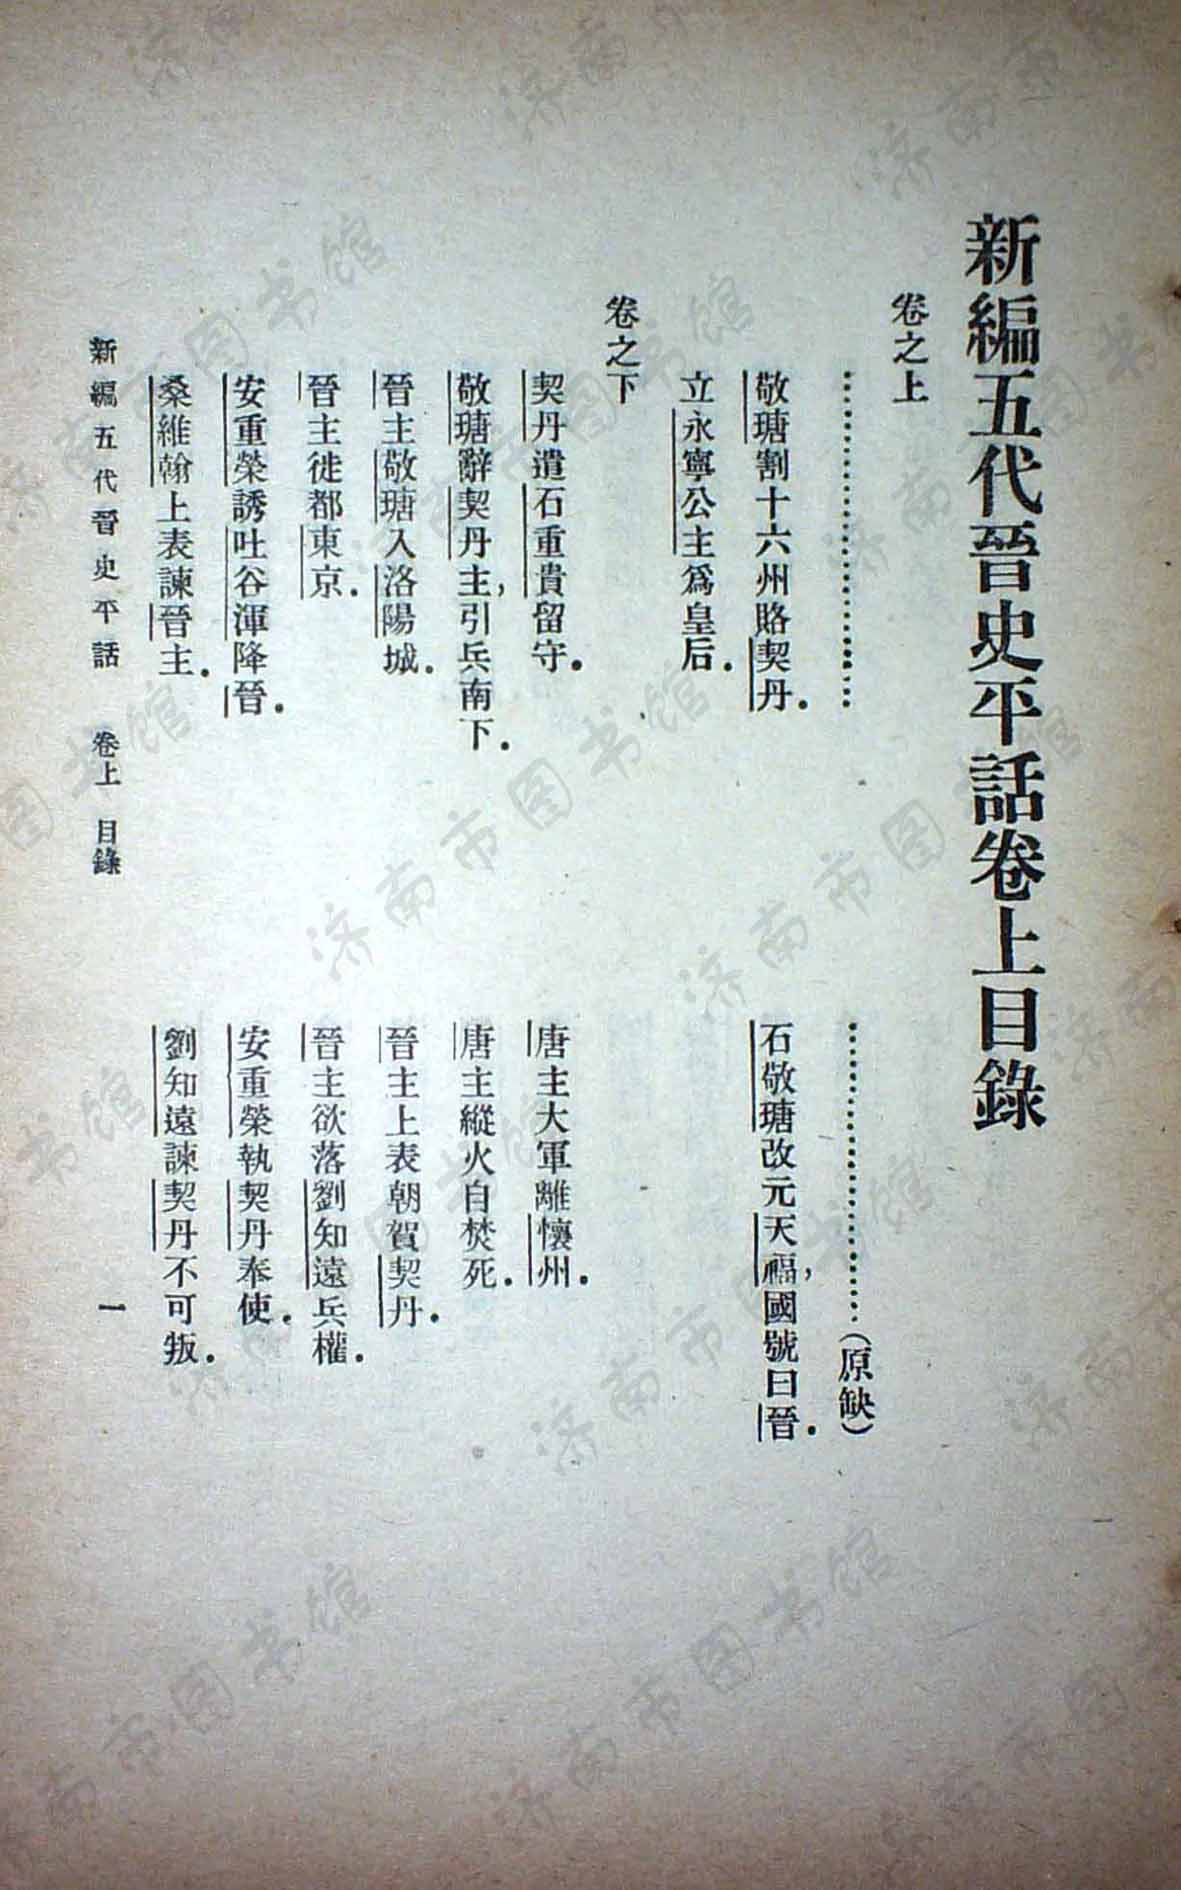 新編五代晉史平話卷上目錄
卷之上
……………………　……………………（原缺）
敬瑭割十六州賂契丹．　石敬瑭改元天福，國號曰晉．
立永寧公主爲皇后．
卷之下
契丹遣石重貴留守．　唐主大軍離懷州．
敬瑭辭契丹主，引兵南下．　唐主縱火自焚死．
晉主敬瑭入洛陽城．　晉主上表朝賀契丹．
晉主徙都東京．　晉主欲落劉知遠兵權．
安重榮誘吐谷渾降晉．　安重榮執契丹奉使．
桑維翰上表諫晉主．　劉知遠諫契丹不可叛．
新編五代晉史平話　卷上　目錄　一
济南市图书馆